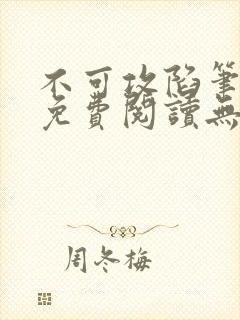 不可攻陷筆
免費閱讀無
周冬梅